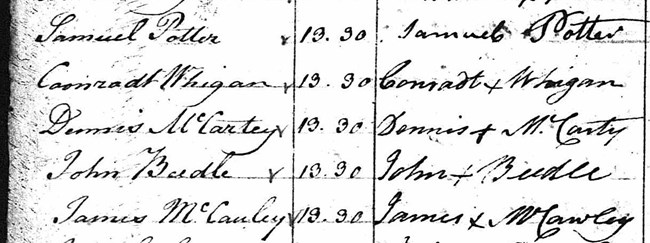 Samuel Potter 13.30 Samuel Potter
Coonradt Whigan 13.30 Conradt x Whigan
Dennis McCartey 13.30 Dennis x McCarty
John Beedle 13.30 John x Beedle
James McCauley 13.30 James x McCawley